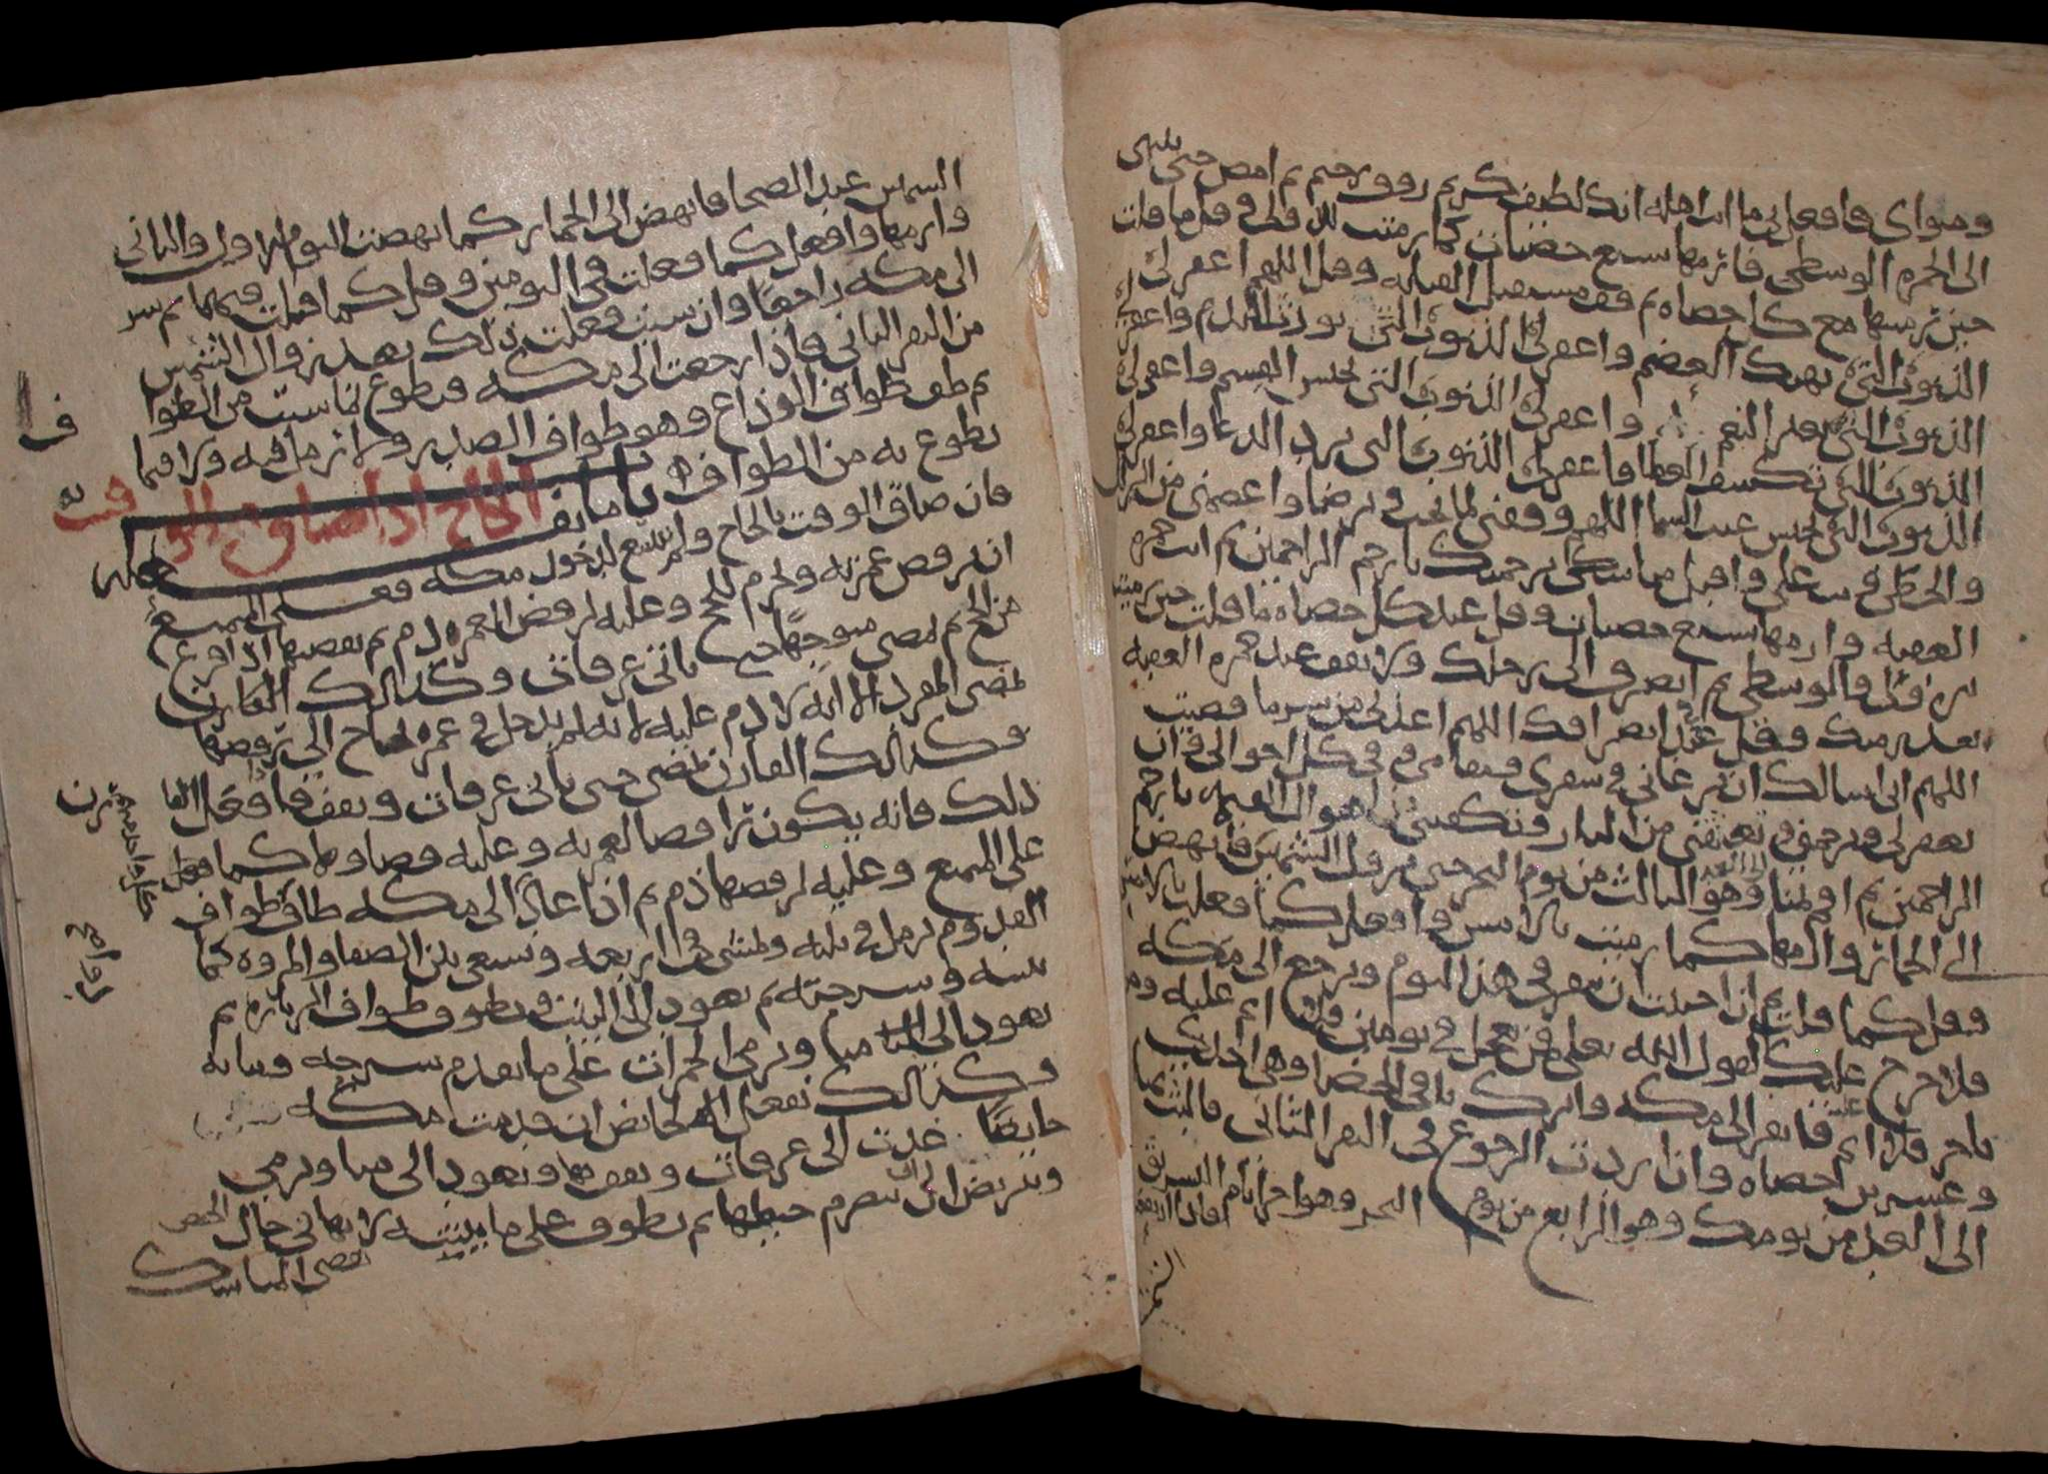 ومثواي فافعل بي ما انت اهله انك لطيف كريم رووف رحيم ثم امض حتى تنتهي
الى الجمره الوسطى فارمها بسبع حصيات كما رميت وقل ما قلت
حين ترميها مع كل حصاه ثم قف مستقبل القبله وقل اللهم اغفر لي
الذنوب التي تهتك العصم واغفر لي الذنوب التي تورث الندم واغفر لي
الذنوب التي تغير النعم واغفر لي الذنوب التي تحبس القسم واغفر لي
الذنوب التي تكشف الغطا واغفر لي الذنوب التي ترد الدعا واغفر لي
الذنوب التي تحبس غيث السما اللهم ووفقني لما تحب وترضا واعصمني من الزلل
والخطا وتب علي واقبل مناسكي برحمتك يا ارحم الراحمين ثم ات جمره
العقبه وارمها بسبع حصيات وقل عند كل حصاه ما قلت حين رميت
والوسطى ثم انصرف الى رحلك ولا تقف عند جمره العقبه
بعد رميك وقل عند انصرافك اللهم اعذني من شر ما قضيت
اللهم اني اسالك ان ترعاني في سفري ومقامي وفي كل احوالي وان
تغفر لي وترحمني وتعتقني من النار وتكفيني اهوال القيمه يا ارحم
الراحمين ثم اقم بمنا وهو الثالث من يوم النحر حتى تزول الشمس فانهض
الى الجمار وارمها كما رميت بالامس وافعل كما فعلت بالامس
وقل كما قلت ثم ان احببت ان تنفر في هذا اليوم وترجع الى مكه
فلا حرج عليك لقول الله تعلى فمن تعجل في يومين فلا اثم عليه ومن
تاخر فلا اثم عليه فانفر الى مكه واترك باقي الحصا وهي احدى
وعشرين حصاه وان اردت الرجوع في النفر الثاني فالبث بمنا
الى الغد من يومك وهو الرابع من يوم النحر وهو اخر ايام التشريق
الشمس عند الضحا فانهض الى الجمار كما نهضت اليوم الاول والثاني
وارمها وافعل كما فعلت في اليومين وقل كما قلت فيهما ثم سر
الى مكه راجعا وان شيت فعلت ذلك بعد زوال الشمس
من النفر الثاني فاذا رجعت الى مكه فتطوع بما شيت من الطواف
ثم طف طواف الوداع وهو طواف الصدر ولا ترمل فيه ولا فيما
تطوع به من الطواف باب ما يفعله الحاج اذا ضاق به الوقت
فان ضاق الوقت بالحاج ولم يتسع لدخول مكه فعلى المتمتع
ان يرفض عمرته ويحرم للحج وعليه لرفض العمره دم ثم يقضيها اذا فرغ
من الحج ثم يمضي متوجها حتى ياتي عرفات وكذلك القارن
يمضي المفرد الا انه لا دم عليه لانه لم يدخل في عمره يحتاج الى رفضها
وكذلك القارن يمضي حتى ياتي عرفات ويقف فاذا فعل
ذلك فانه يكون رافضا لعمرته وعليه قضاوها كما قلنا
على المتمتع وعليه لرفضها دم ثم اذا عاد الى مكه طاف طواف
القدوم يرمل في ثلثه ويمشي في اربعه ويسعى بين الصفا والمروه كما
بينته وشرحته ثم يعود الى البيت ويطوف طواف الزياره ثم
يعود الى منا ويرمي الجمرات على ما تقدم شرحه وبيانه
وكذلك تفعل الحايض ان قدمت مكه
حايضا غدت الى عرفات وتقف بها وتعود الى منا وترمي
وتتربص الى ان ينصرم حيضها ثم تطوف على ما بينته لانها في حال الحيض
تقضي المناسك